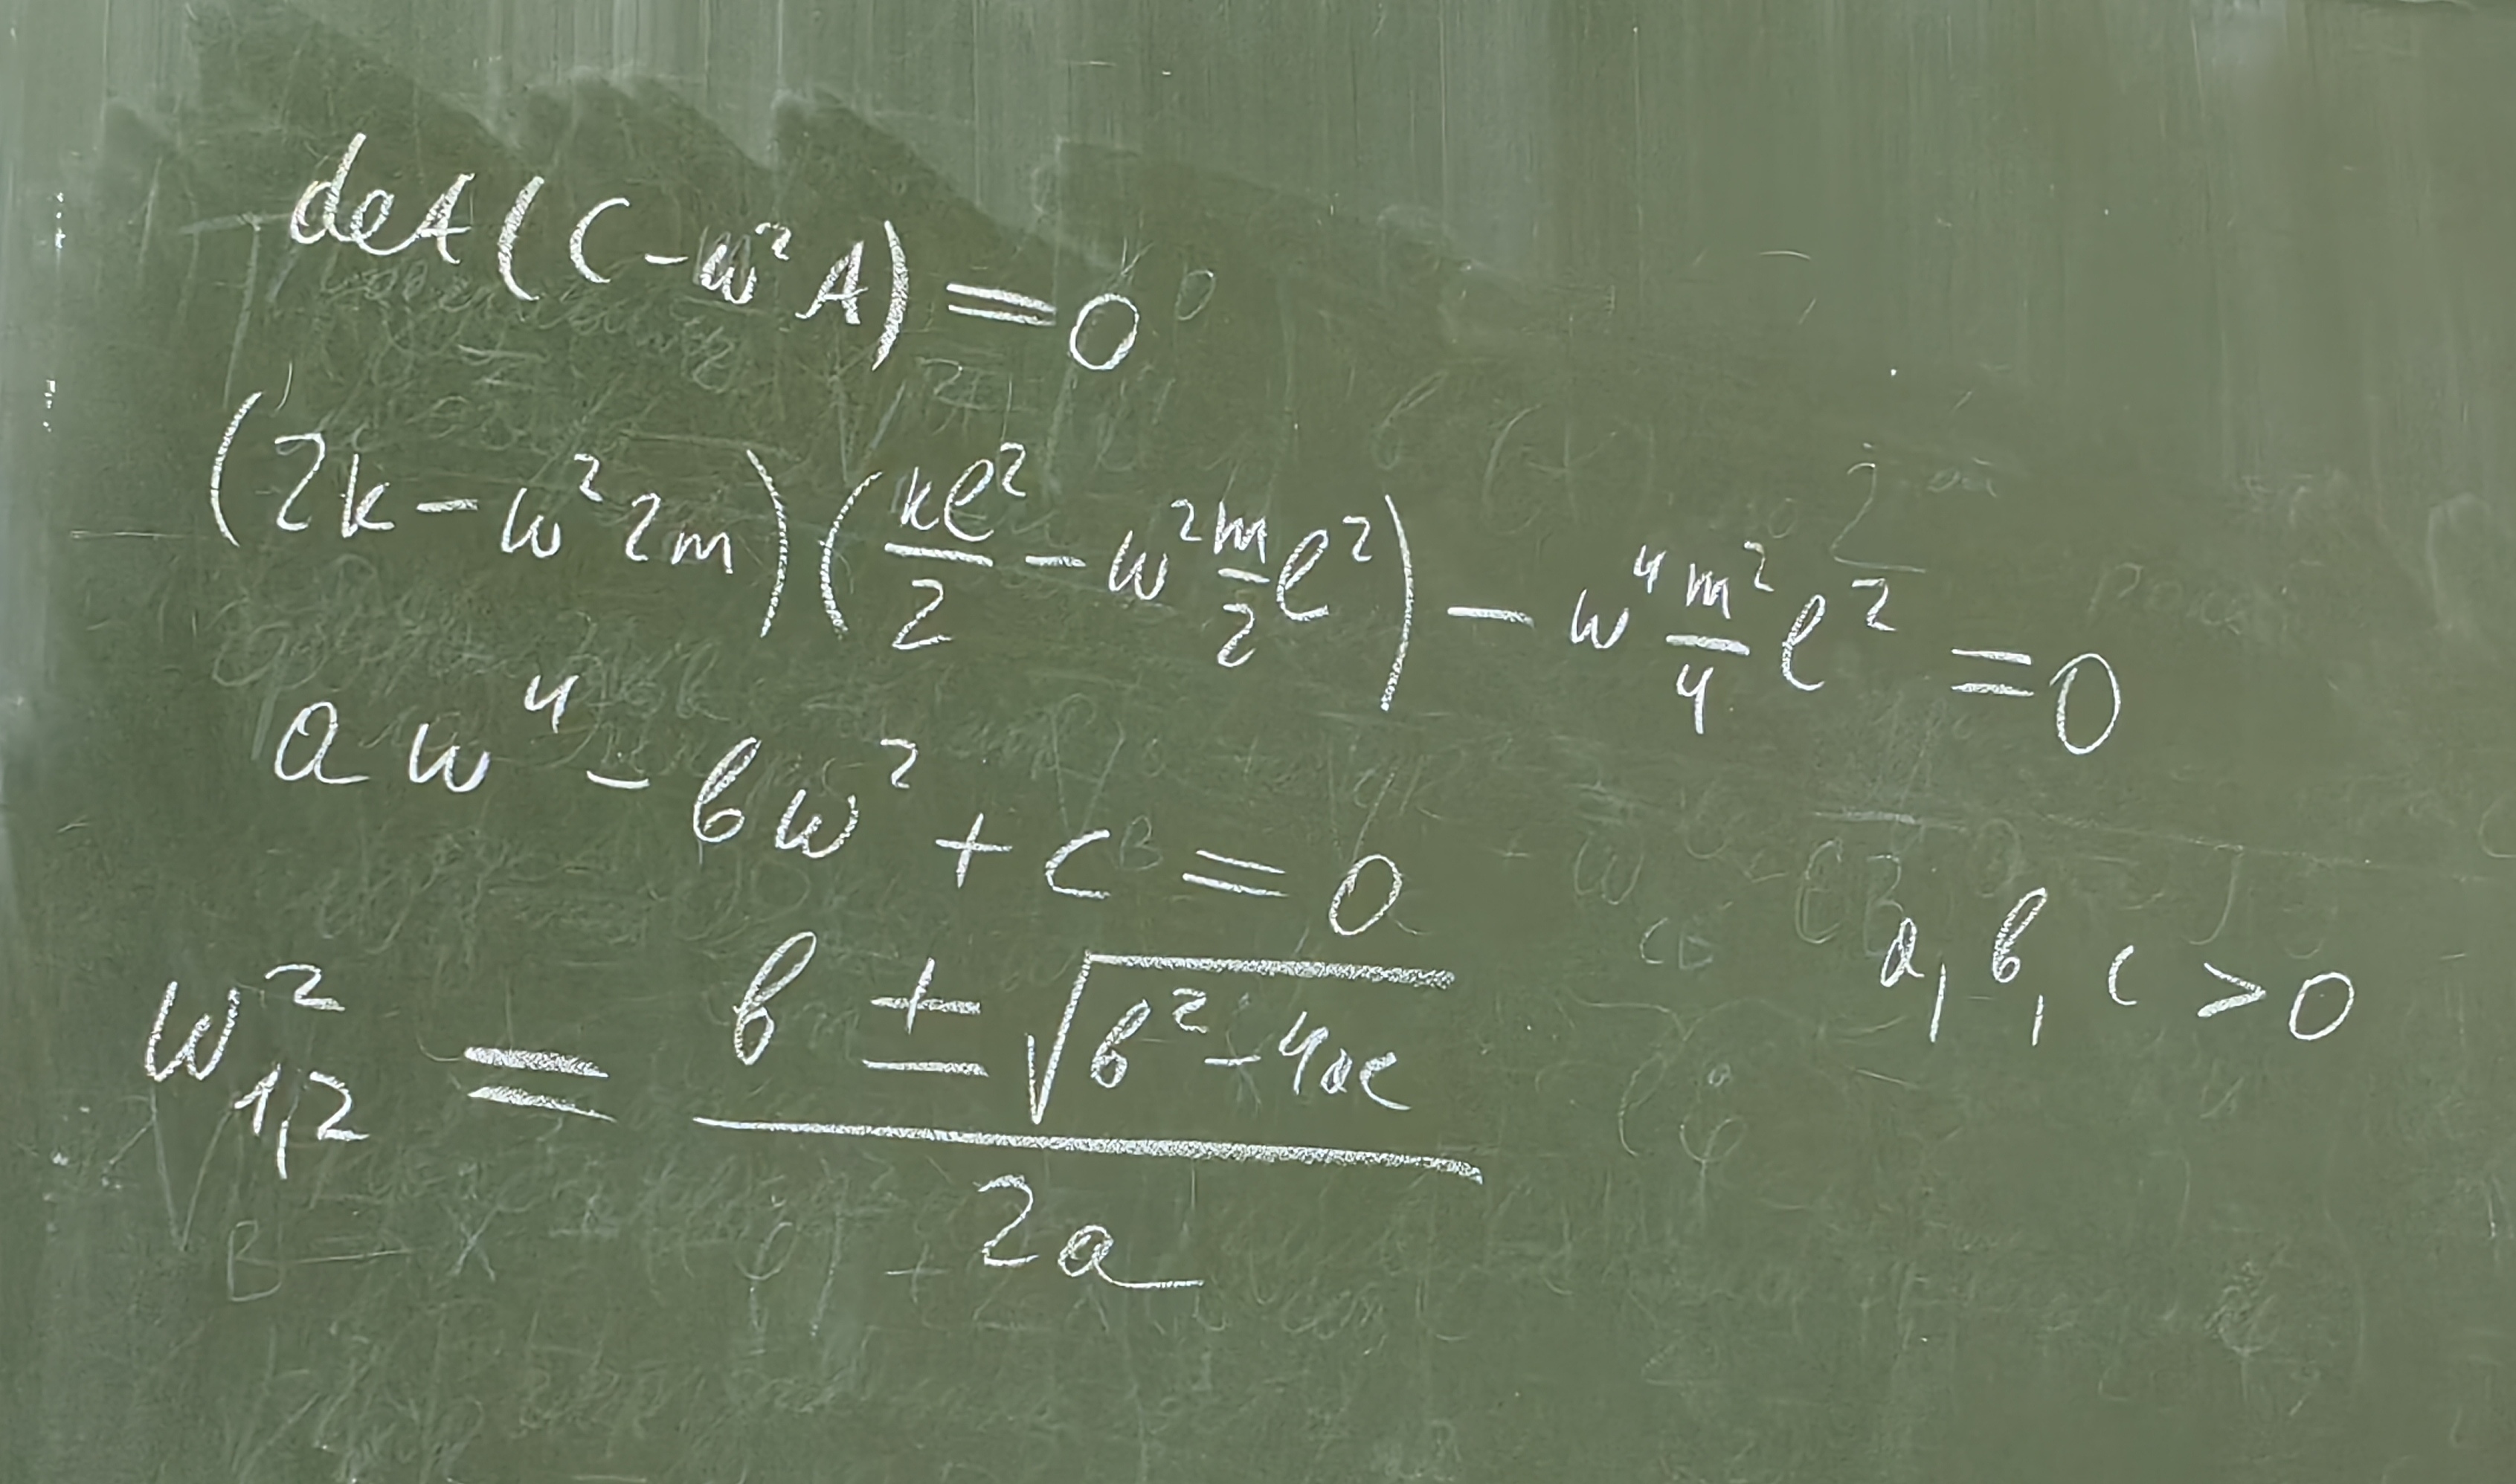 det(C-ω²A)=0
(2k-ω²2m)(kℓ²/2-ω²m/2ℓ²)-ω⁴m²/4ℓ²=0
aω⁴-bω²+c=0
a, b, c>0
ω²₁,₂=(b±√(b²-4ac))/2a